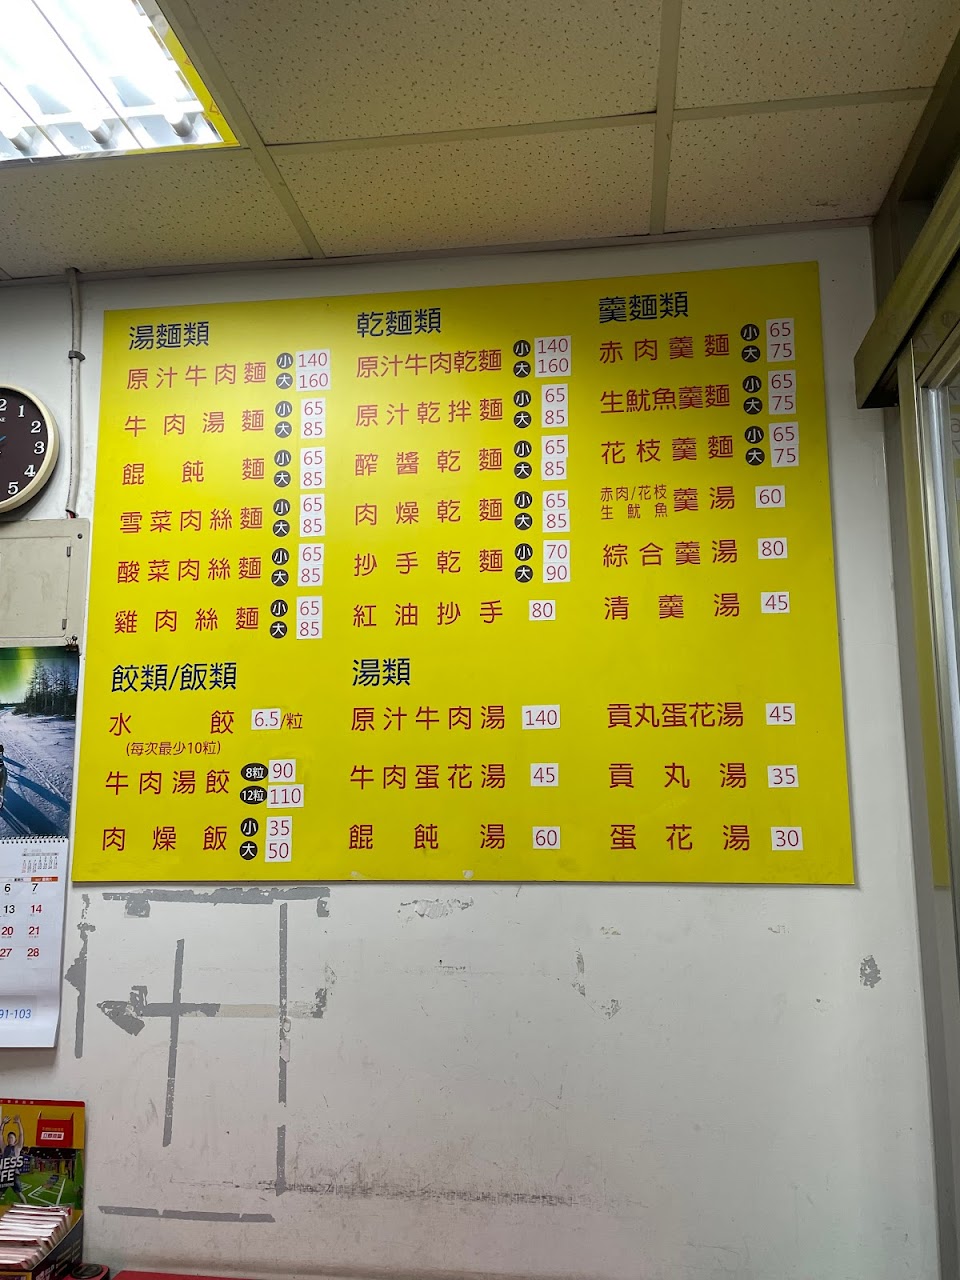 湯麵類
原汁牛肉麵 小 140 大 160
牛肉湯麵 小 65 大 85
餛飩麵 小 65 大 85
雪菜肉絲麵 小 65 大 85
酸菜肉絲麵 小 65 大 85
雞肉絲麵 小 65 大 85
乾麵類
原汁牛肉乾麵 小 140 大 160
原汁乾拌麵 小 65 大 85
醡醬乾麵 小 65 大 85
肉燥乾麵 小 65 大 85
抄手乾麵 小 70 大 90
紅油抄手 80
羹麵類
赤肉羹麵 小 65 大 75
生魷魚羹麵 小 65 大 75
花枝羹麵 小 65 大 75
赤肉/花枝
生魷魚 羹湯 60
綜合羹湯 80
清羹湯 45
餃類/飯類
水餃 6.5/粒
(每次最少10粒)
牛肉湯餃 8粒 90 12粒 110
肉燥飯 小 35 大 50
湯類
原汁牛肉湯 140
牛肉蛋花湯 45
餛飩湯 60
貢丸蛋花湯 45
貢丸湯 35
蛋花湯 30
1
2
3
4
5
6 7
13 14
20 21
27 28
91-103